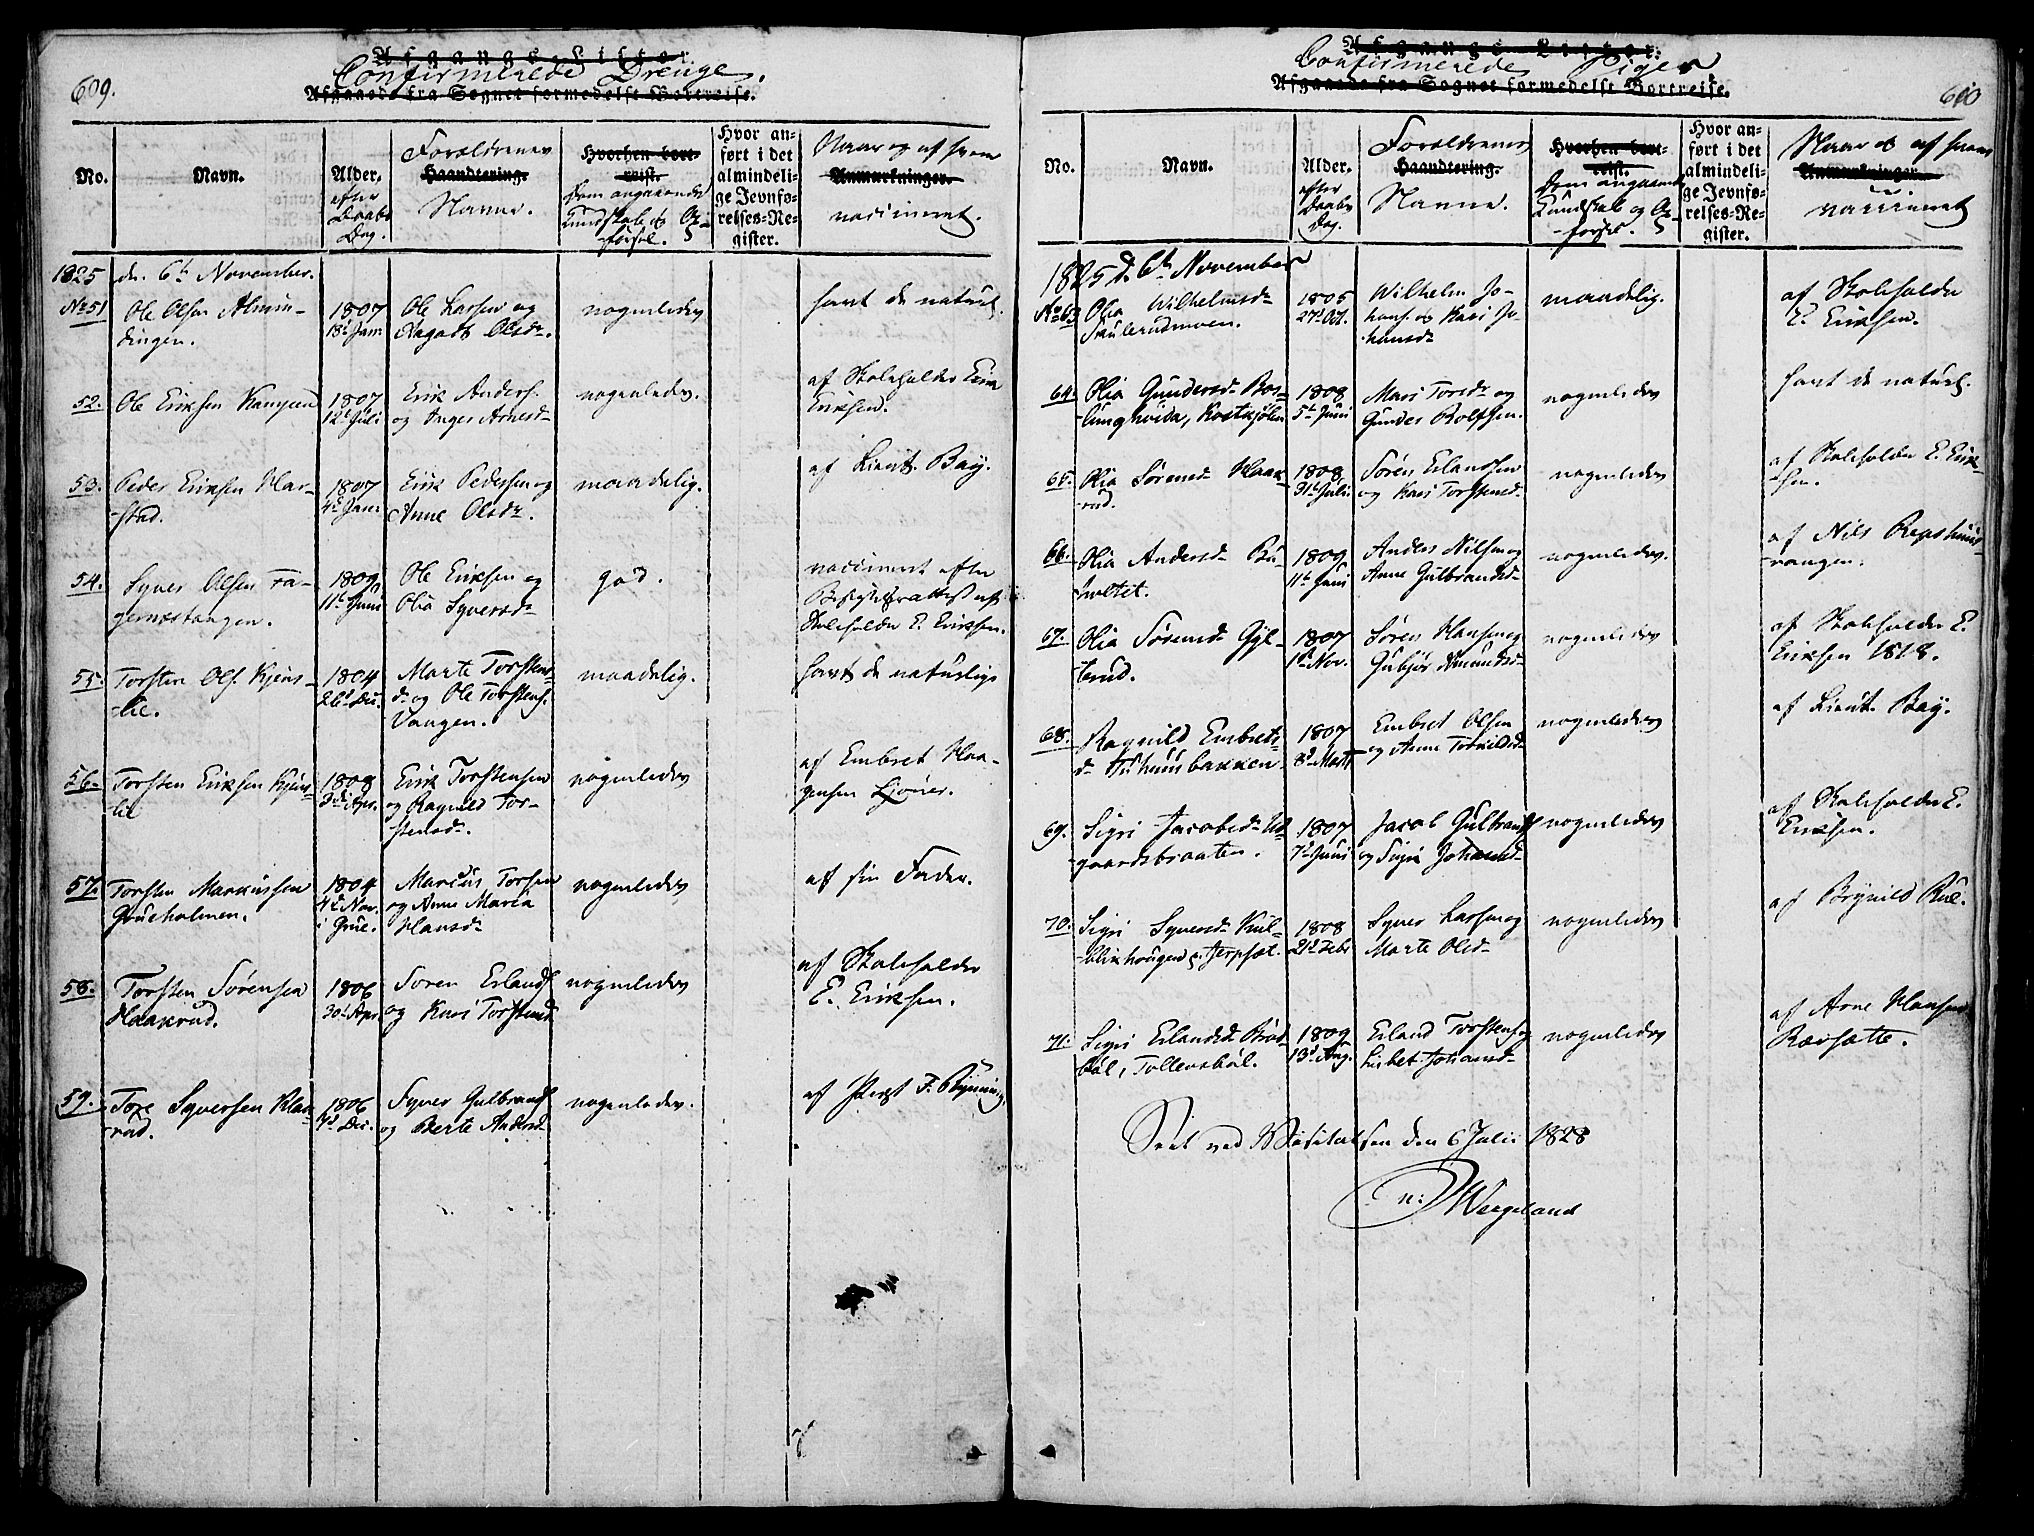 609.
Afgangs-Lister.
Confirmerede Drenge.
Afgaaede fra Sognet formedelst Bortreise.
No.
Navn.
Alder.
efter
Daabs
Dag.
Forældrenes
Haandtering.
Navne.
Hvorhen bort-
reist.
Dom angaaende
Kundskab og Op-
førsel.
Hvor an-
ført i det
almindeli-
ge Jevnfø-
relses-Re-
gister.
Naar og af hvem
Anmærkninger.
vaccineret.
1825 d. 6te November.
No 51 Ole Olsen Almin-
dingen.
1807
18de Janr
Ole Larsen og
Aagadt Olsdr.
nogenledes
havt de naturl.
52. Ole Eriksen
1807
12te Juli
Erik Anders.
og Inger Arnesdr
nogenledes.
af Skoleholder Erik
Eriksen.
53. Peder Eriksen Har-
stad.
1807
4de Janr
Erik Pedersen og
Anne Olsdr.
maadelig.
af Lieut. Bay.
54. Syver Olsen Fa-
gernæstangen.
1809
11te Juni
Ole Eriksen og
Olia Syversdr
god.
vaccineret efter
af
Skoleholder E. Eriksen.
55. Torsten Ols. Kjens-
lie.
1804
26d Dec.
Marte Torstens-
dr og Ole Torstens.
Vangen.
maadelig.
havt de naturlige
56. Torsten Eriksen Kjens-
lie
1808
3die Apr.
Erik Torstensen
og Ragnild Tor-
stensdr.
nogenledes
af Embret Haa-
gensen Lioner.
57. Torsten Markussen
Grueholmen.
1804
4de Nov.
i Grue.
Marcus Torsen
og Anne Maria
Hansdr
nogenledes
af sin Fader.
58. Torsten Sørensen
Haakrud.
1806
30te Apr
Soren Erlands.
og Kari Torstensd
nogenledes
af Skoleholder
E. Eriksen.
59. Tore Syversen Klæ-
rud.
1806
7d Dec.
Syver Gulbrands.
og Berte Andersd
nogenledes.
af Præst F. Rynning.
610
Afgangs-Lister.
Confirmerede Piger
Afgaaede fra Sognet formedelst Bortreise.
No.
Navn.
Alder.
efter
Daabs
Dag.
Forældrenes
Haandtering.
Navne.
Hvorhen bort-
reist.
Dom angaaende
Kundskab og Op-
førsel.
Hvor an-
ført i det
almindeli-
ge Jevnfø-
relses-Re-
gister.
Naar og af hvem
Anmærkninger.
vaccineret
1825 d. 6te November
No 63 Olia Wilhelmsdr
1805
27d Oct.
Wilhelm Jo-
hans. og Kari Jo-
hansdr
maadelig.
af Skoleholder
E. Eriksen.
64. Olia Gundersdr
1808
5te Juni
Mari Toresdr og
Gunder Rolfsen.
nogenledes
havt de naturl.
65. Olia Sørensdr Haak-
rud.
1808
31te Juli
Søren Erlandsen
og Kari Torstensdr
nogenledes
af Skoleholder E. Erik-
sen.
66. Olia Andersdr
1809
11te Juni
Anders Nilsen og
Anne Gulbrandsdr
nogenledes.
af Nils
vangen.
67. Olia Sørensdr Gyl-
terud.
1807
1d Nov.
Søren Hansen og
Gubjør Amundsdr
nogenledes
af Skoleholder E.
Eriksen 1818.
68. Ragnild Embrets-
dr
1807
8d Marts
Embret Olsen
og Anne
nogenledes
af Lieut. Bay.
69. Sigri Jacobsdr
gaardsbraaten.
1807
7d Juni
Jacob Gulbrands.
og Sigri Johansdr
nogenledes
af Skoleholder E.
Eriksen.
70. Sigri Syversdr Kul-
blikhougen,
1808
21d Febr
Syver Larsen og
Marte Olsdr
nogenledes
af Brynild Rul.
71. Sigri Erlandsdr Brød-
bøl, Tollevsbøl.
1809
13d Aug.
Erland Torstens. og
Lisbet Johansdr
nogenledes
af Arne Hansen
Rævsætte.
Seet ved Visitatsen den 6 Julii 1828
n: Wergeland